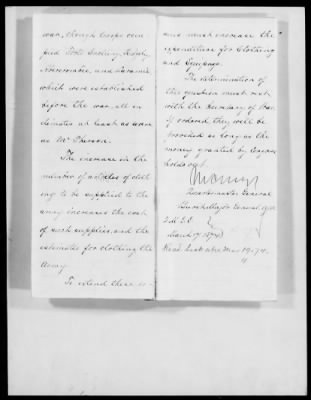 war, though troops occu-
pied Forts
and
which were established
before the war, all in
climates at least as warm
as McPherson.
The increase in the
number of articles of cloth-
ing to be supplied to the
army increases the cost
of such supplies, and the
estimates for clothing the
Army.
To extend these is-
sues must increase the
expenditures for Clothing
and Equipage.
The determination of
this question must rest
with the Secretary of War.
If ordered they will be
provided as long as the
money granted by Congress
holds out.
Quartermaster General
General, U.S.A.
Q.M.G.O.
March 17, 1874
Recd back Mar. 19, 74.